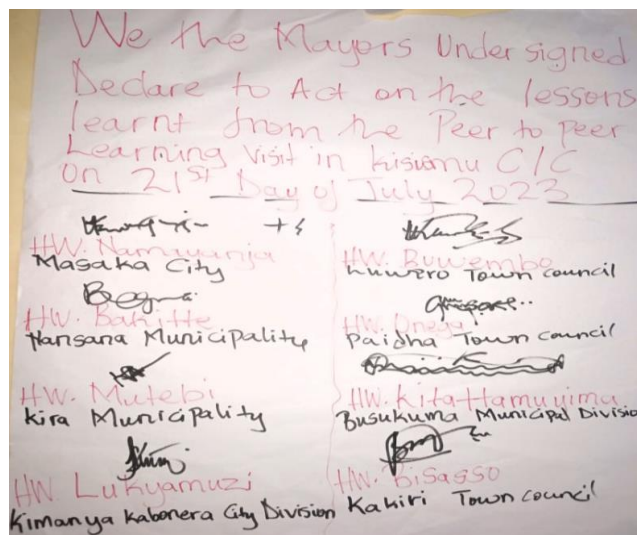 We the Mayors Undersigned
Declare to Act on the lessons
learnt from the Peer to peer
Learning Visit in kisumu C/C
On 21st Day of July 2023
HW. Namuwanja
Masaka City
HW. Bakitte
Nansana Municipality
HW. Mutebi
Kira Municipality
HW. Lukyamuzi
Kimanya Kabonera City Division
HW. Buwembo
Luwero Town council
HW. Onega
Paidha Town council
HW. Kita-Hamuyima
Busukuma Municipal Division
HW. Bisasso
Kakiri Town council